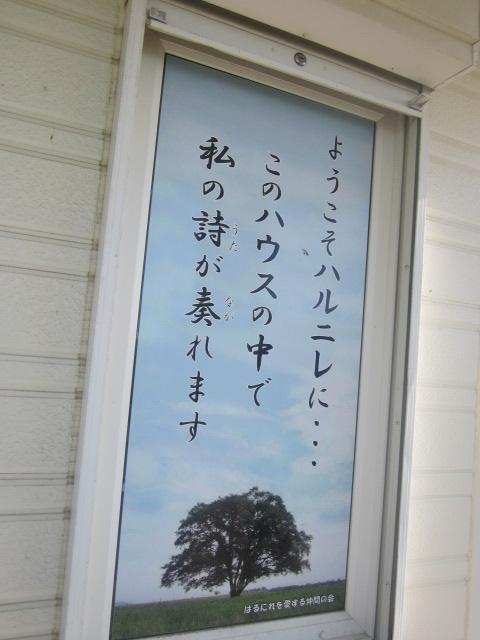 ようこそハルニレに・・・
このハウスの中で
私の詩が奏れます
うた
なが
はるにれを愛する仲間の会